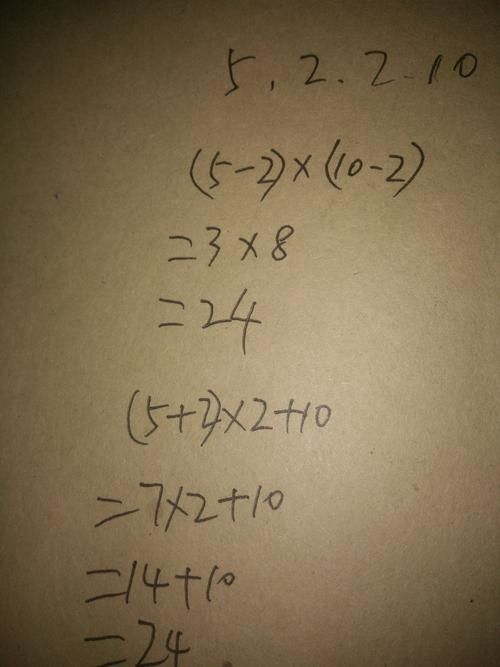 5, 2. 2. 10
(5-2)×(10-2)
=3×8
=24
(5+2)×2+10
=7×2+10
=14+10
=24